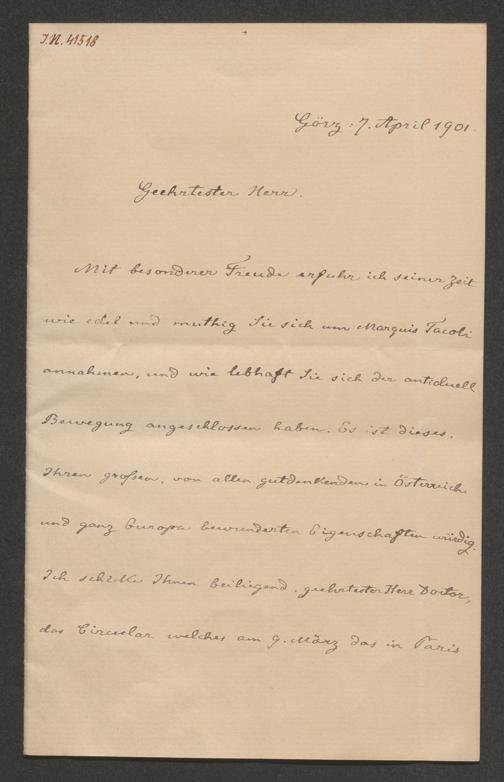 J.N. 41518
Görz : 7. April 1901.
Geehrtester Herr.
Mit besonderer Freude erfuhr ich seiner Zeit
wie edel und muthig Sie sich um Marquis Tacoli
annahmen, und wie lebhaft Sie sich der antiduell
Bewegung angeschlossen haben. Es ist dieses,
Ihren großen, von allen gutdenkenden in Österreich
und ganz Europa bewunderten Eigenschaften würdig.
Ich schicke Ihnen beiliegend, geehrtester Herr Doctor,
das Circular welches am 9. März das in Paris